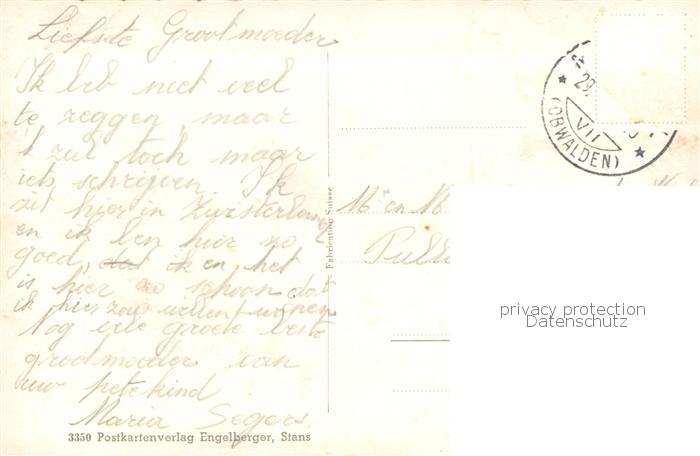 Liefste Grootmoeder
Ik heb niet veel
te zeggen, maar
'k zal toch maar
iets schrijven. Ik
zit hier in Zwitserland
en ik ben hier zo
goed, dat ik en het
is hier zo schoon dat
ik hier zou willen wonen
Nog vele groete beste
grootmoeder van
uw petekind
Maria Segers
3350 Postkartenverlag Engelberger, Stans
Fabrication Suisse
29.
VII
(OBWALDEN)
Mr en M
privacy protection
Datenschutz